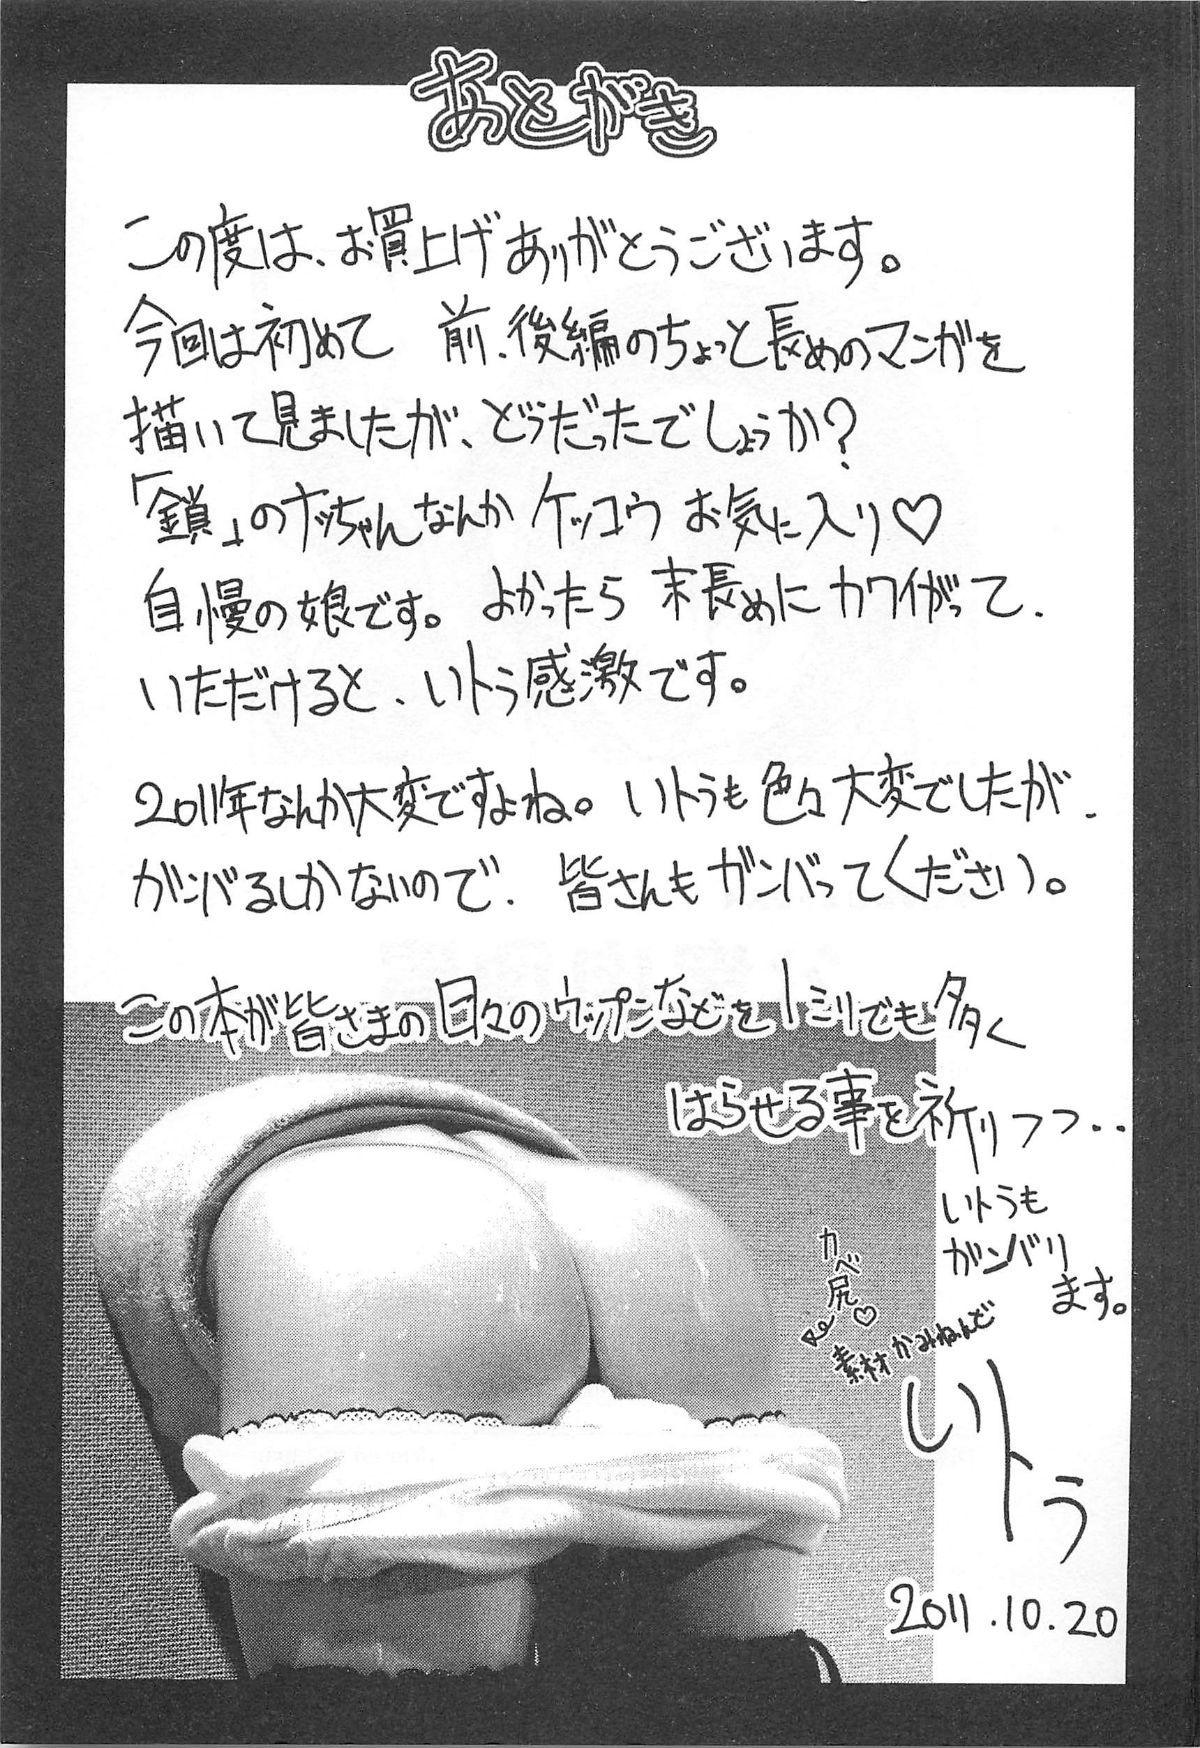 あとがき
この度は、お買上げありがとうございます。
今回は初めて 前、後編のちょっと長めのマンガを
描いて見ましたが、どうだったでしょうか?
「鎖」のナッちゃんなんかケッコウお気に入り♡
自慢の娘です。よかったら末長めにカワイがって、
いただけると、いトラ感激です。
2011年なんか大変ですよね。いトラも色々大変でしたが、
ガンバるしかないので、皆さんもガンバってください。
この本が皆さまの日々のウップンなどを1ミリでも多く
はらせる事を祈りつつ..
いトラも
ガンバリ
ます。
カベ尻♡
素材 かみねんど
いトラ
2011.10.20